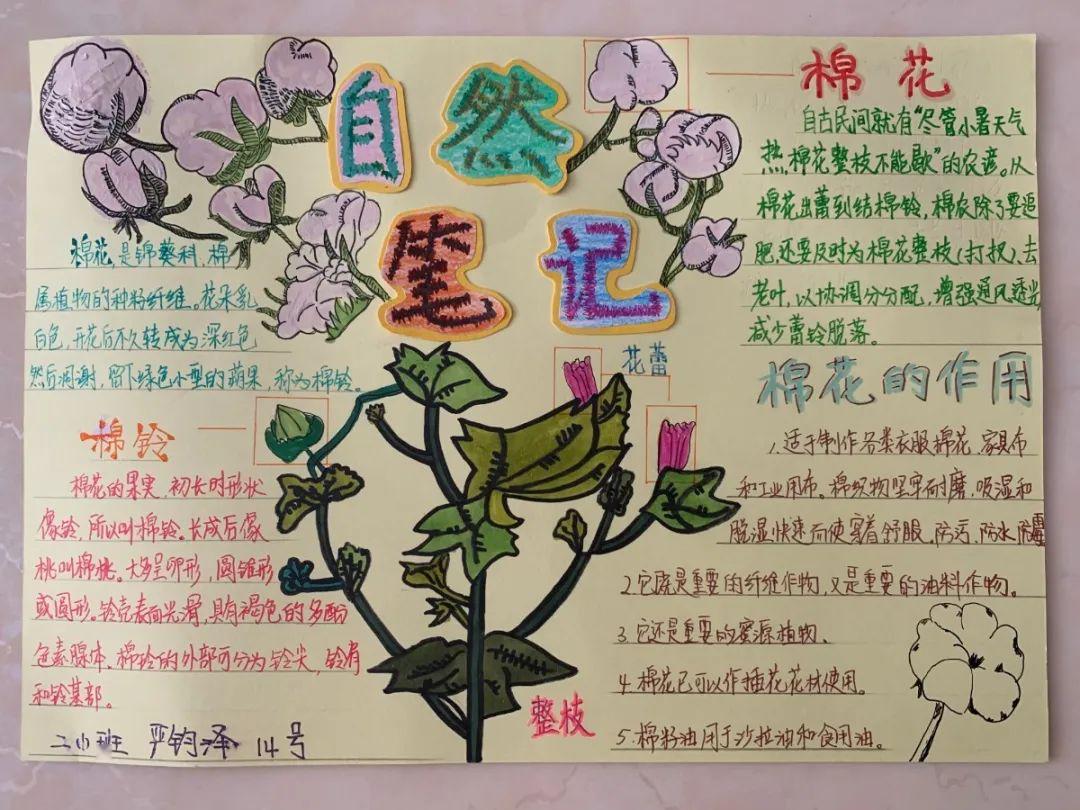 自然
笔记
棉花是锦葵科、棉
属植物的种籽纤维。花朵乳
白色，开花后不久转成为深红色
然后凋谢，留下绿色小型的蒴果，称为棉铃。
棉铃
棉花的果实，初长时形状
像铃，所以叫棉铃。长成后像
桃叫棉桃。大多呈卵形，圆锥形
或圆形。铃壳表面光滑，具有褐色的多酚
色素腺体，棉铃的外部可分为铃尖，铃肩
和铃基部。
二小班 严钧泽 14号
花蕾
整枝
棉花
自古民间就有“尽管小暑天气
热，棉花整枝不能歇”的农谚。从
棉花出蕾到结棉铃，棉农除了要追
肥，还要及时为棉花整枝(打杈)、去
老叶，以协调分分配，增强通风透光，
减少蕾铃脱落。
棉花的作用
1、适于制作各类衣服棉花、家具布
和工业用布。棉织物坚牢耐磨，吸湿和
脱湿快速而使穿着舒服，防污，防水，防霉
2.它既是重要的纤维作物，又是重要的油料作物。
3、它还是重要的蜜源植物、
4.棉花已可以作插花花材使用。
5.棉籽油用于沙拉油和食用油。